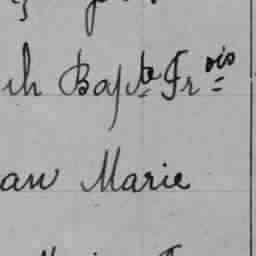 ch Bapte Frois
an Marie